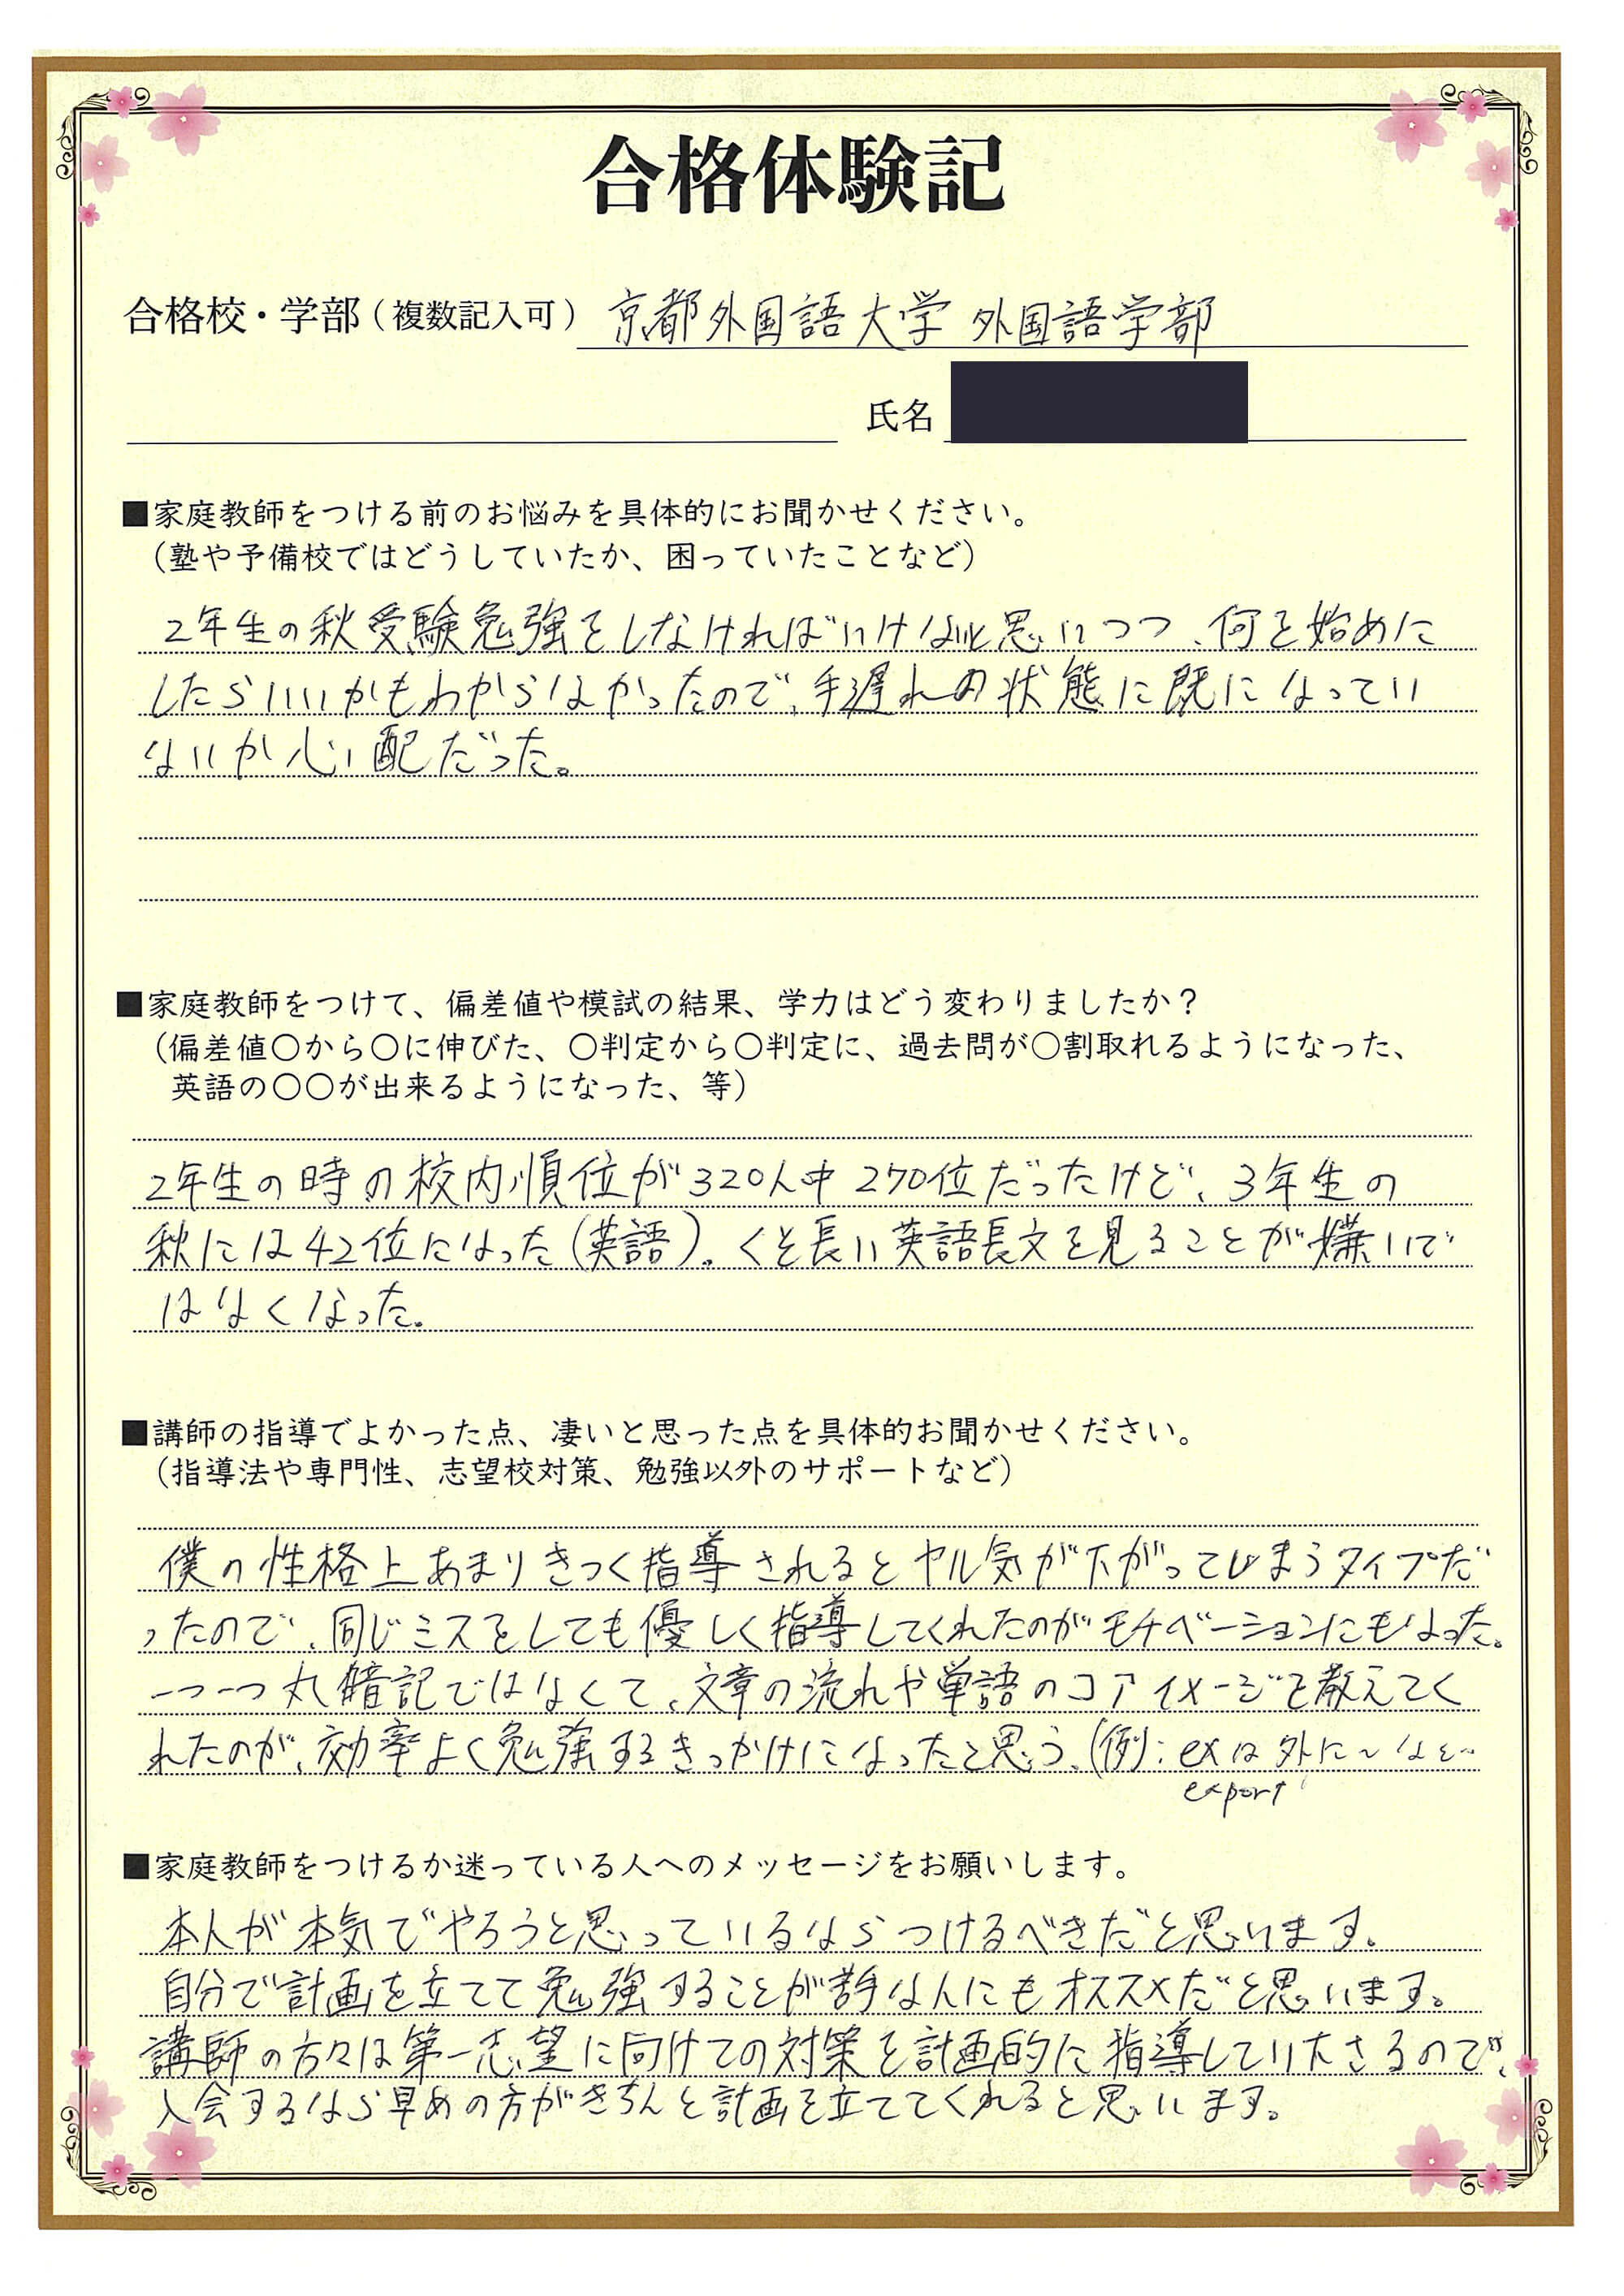 合格体験記
合格校・学部（複数記入可） 京都外国語大学 外国語学部
氏名
■家庭教師をつける前のお悩みを具体的にお聞かせください。
（塾や予備校ではどうしていたか、困っていたことなど）
2年生の秋受験勉強をしなければいけないと思いつつ、何を始めに
したらいいかもわからなかったので、手遅れの状態に既になってい
ないか心配だった。
■家庭教師をつけて、偏差値や模試の結果、学力はどう変わりましたか？
（偏差値〇から〇に伸びた、〇判定から〇判定に、過去問が〇割取れるようになった、
英語の〇〇が出来るようになった、等）
2年生の時の校内順位が320人中270位だったけど、3年生の
秋には42位になった(英語)。くそ長い英語長文を見ることが嫌いで
はなくなった。
■講師の指導でよかった点、凄いと思った点を具体的お聞かせください。
（指導法や専門性、志望校対策、勉強以外のサポートなど）
僕の性格上あまりきつく指導されるとヤル気が下がってしまうタイプだ
ったので、同じミスをしても優しく指導してくれたのがモチベーションにもなった。
一つ一つ丸暗記ではなくて、文章の流れや単語のコアイメージを教えてく
れたのが、効率よく勉強するきっかけになったと思う。(例): exは外に〜など〜
export
■家庭教師をつけるか迷っている人へのメッセージをお願いします。
本人が本気でやろうと思っているならつけるべきだと思います。
自分で計画を立てて勉強することが苦手な人にもオススメだと思います。
講師の方々は第一志望に向けての対策を計画的に指導していたさるので、
入会するなら早めの方がきちんと計画を立ててくれると思います。